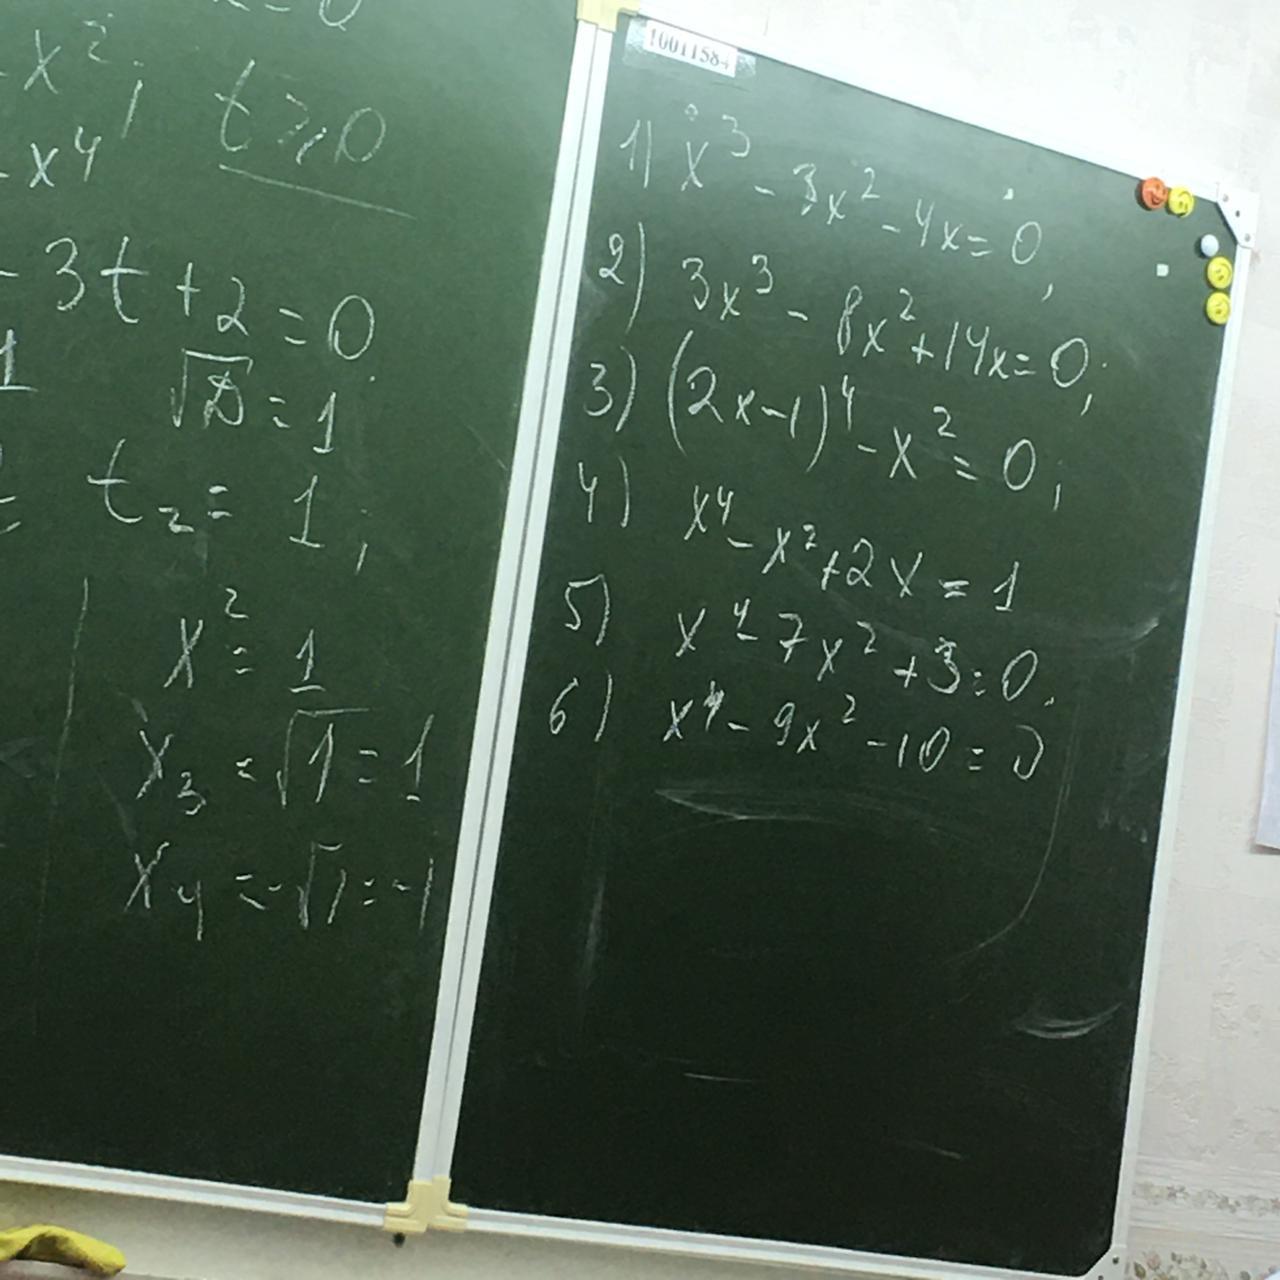 x²; t ⩾ 0
- x⁴
- 3t + 2 = 0
1 √D = 1
t₂ = 1;
x² = 1
x₃ = √1 = 1
x₄ = -√1 = -1
10011584
1) x³ - 3x² - 4x = 0;
2) 3x³ - 8x² + 14x = 0;
3) (2x-1)⁴ - x² = 0;
4) x⁴ - x² + 2x = 1
5) x⁴ - 7x² + 3 = 0.
6) x⁴ - 9x² - 10 = 0